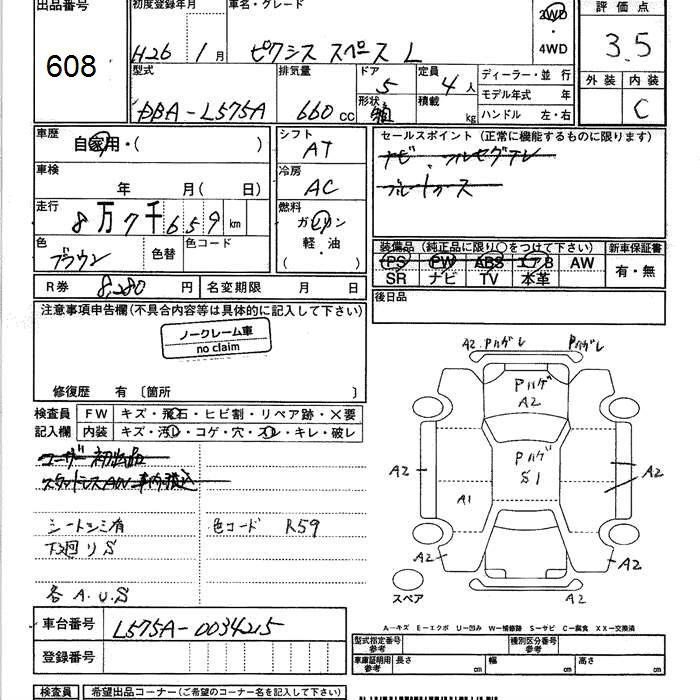 出品番号 608
初度登録年月 H26年 1月
車名・グレード ピクシス スペース L
2WD ・ 4WD
評価点 3.5
外装 内装 C
型式 DBA-L575A
排気量 660 cc
ドア 5 形状 箱
定員 4人 積載 kg
ディーラー・並行
モデル年式 年
ハンドル 左・右
車歴 自家用・( )
シフト AT
セールスポイント(正常に機能するものに限ります)
ナビ・フルセグテレ
車検 年 月(日)
冷房 AC
走行 8万7千659km
燃料 ガソリン 軽・油 ( )
色 ブラウン 色替 色コード
装備品(純正品に限り○をつけて下さい) 新車保証書
PS PW ABS エアB AW
SR ナビ TV 本革
有・無
R券 8,280円 名変期限 月 日
後日品
注意事項申告欄(不具合内容等は具体的に記入して下さい)
ノークレーム車
no claim
修復歴 有 〔箇所 〕
検査員 FW キズ・飛石・ヒビ割・リペア跡・×要
記入欄 内装 キズ・汚レ・コゲ・穴・スレ・キレ・破レ
ユーザー初出品
スタットレスAW車内積込
シートシミ有 色コード R59
下廻リS
各A.U.S
A2.Pハゲレ Pハゲレ
Pハゲ
A2
Pハゲ
S1
A2 A1 A2
A2 A2
スペア A2
A—キズ E—エクボ U—凹み W—補修跡 S—サビ C—腐食 XX—交換済
車台番号 L575A-0034215
登録番号
型式指定番号 参考 種別区分番号 参考
車庫証明用 参考 長さ cm 幅 cm 高さ cm
検査員 希望出品コーナー(ご希望のコーナー名を記入して下さい)